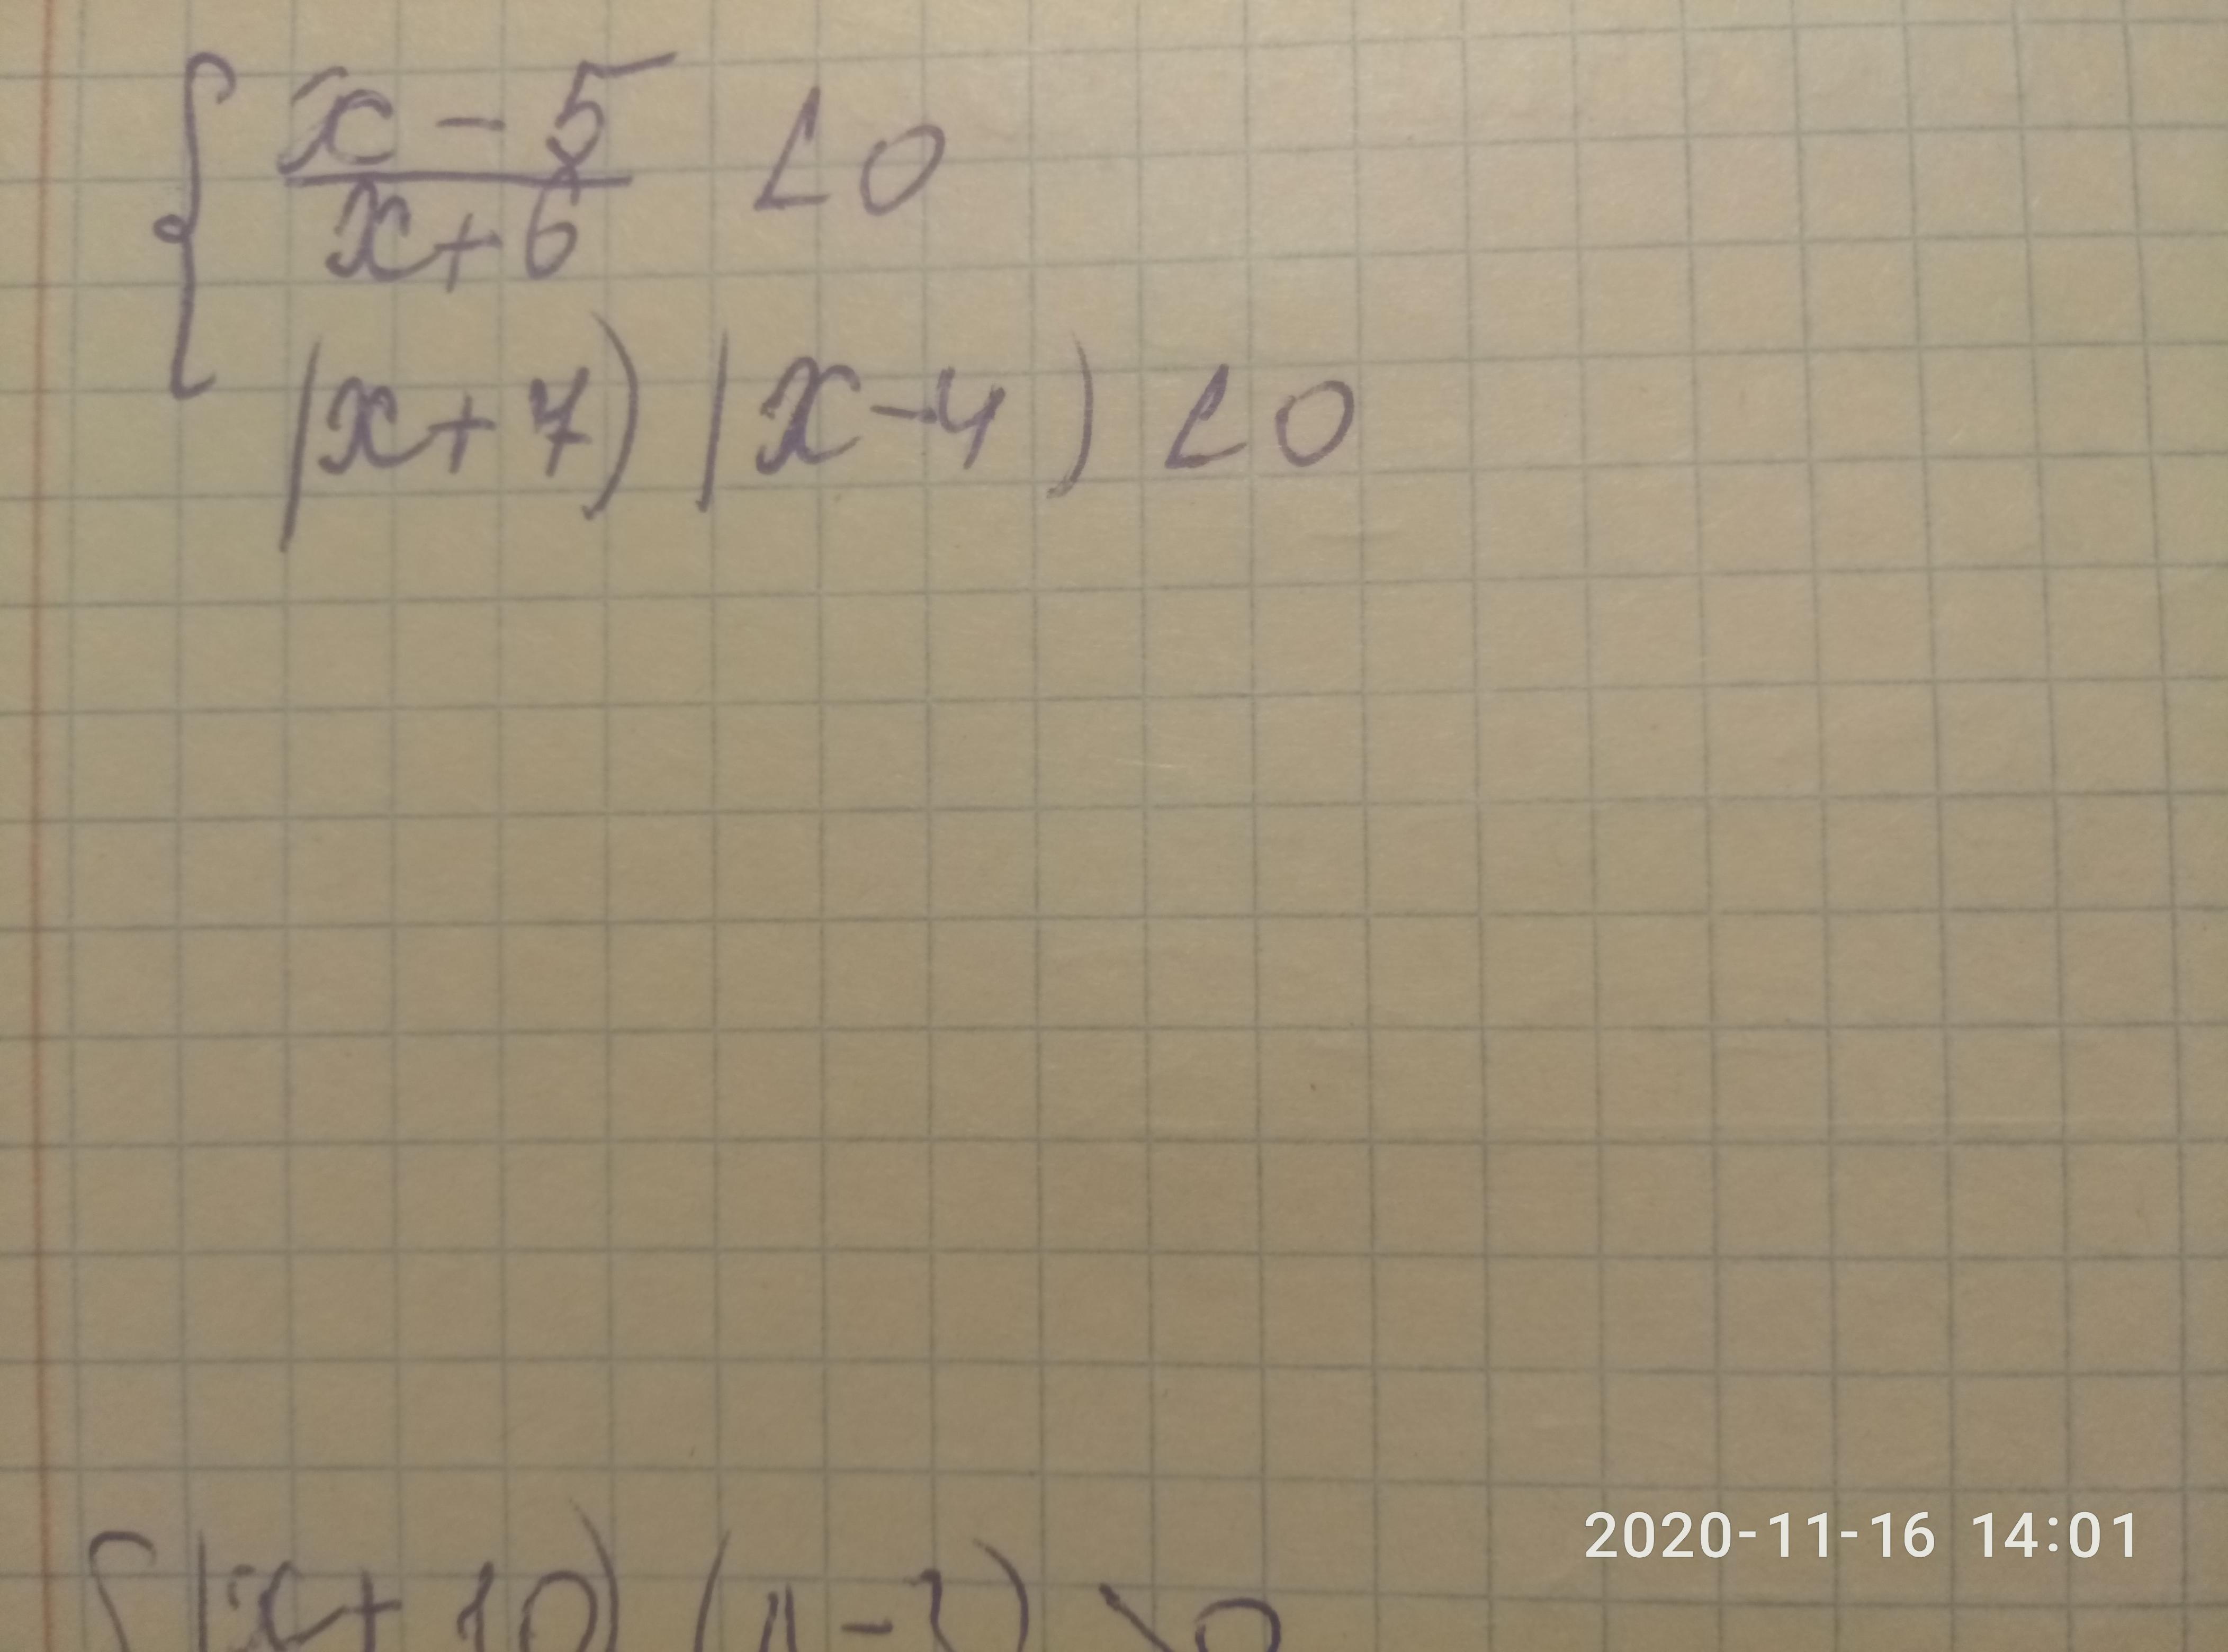 x - 5
x + 6
< 0
(x + 7) (x - 4) < 0
2020-11-16 14:01
(x + 10)